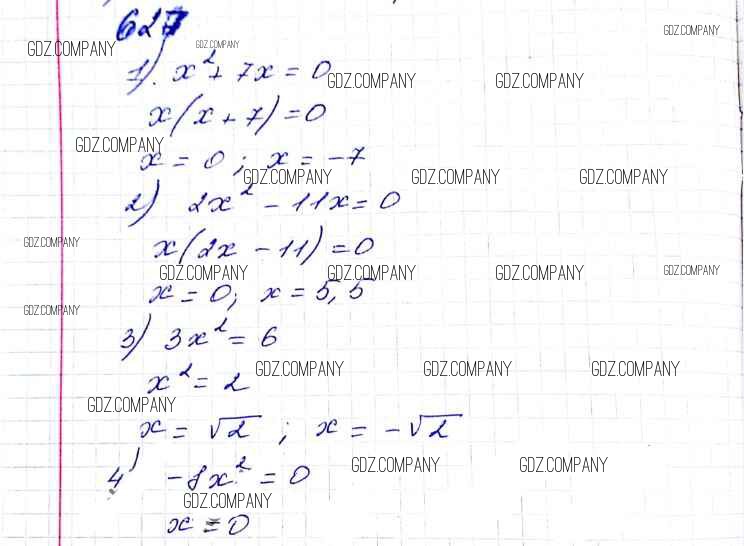 627
GDZ.COMPANY GDZ.COMPANY GDZ.COMPANY
1) x² + 7x = 0
GDZ.COMPANY GDZ.COMPANY
x(x + 7) = 0
GDZ.COMPANY
x = 0; x = -7
GDZ.COMPANY GDZ.COMPANY GDZ.COMPANY
2) 2x² - 11x = 0
GDZ.COMPANY
x(2x - 11) = 0
GDZ.COMPANY GDZ.COMPANY GDZ.COMPANY GDZ.COMPANY
x = 0; x = 5,5
GDZ.COMPANY
3) 3x² = 6
GDZ.COMPANY GDZ.COMPANY GDZ.COMPANY
x² = 2
GDZ.COMPANY
x = √2; x = -√2
GDZ.COMPANY GDZ.COMPANY
4) -8x² = 0
GDZ.COMPANY
x = 0